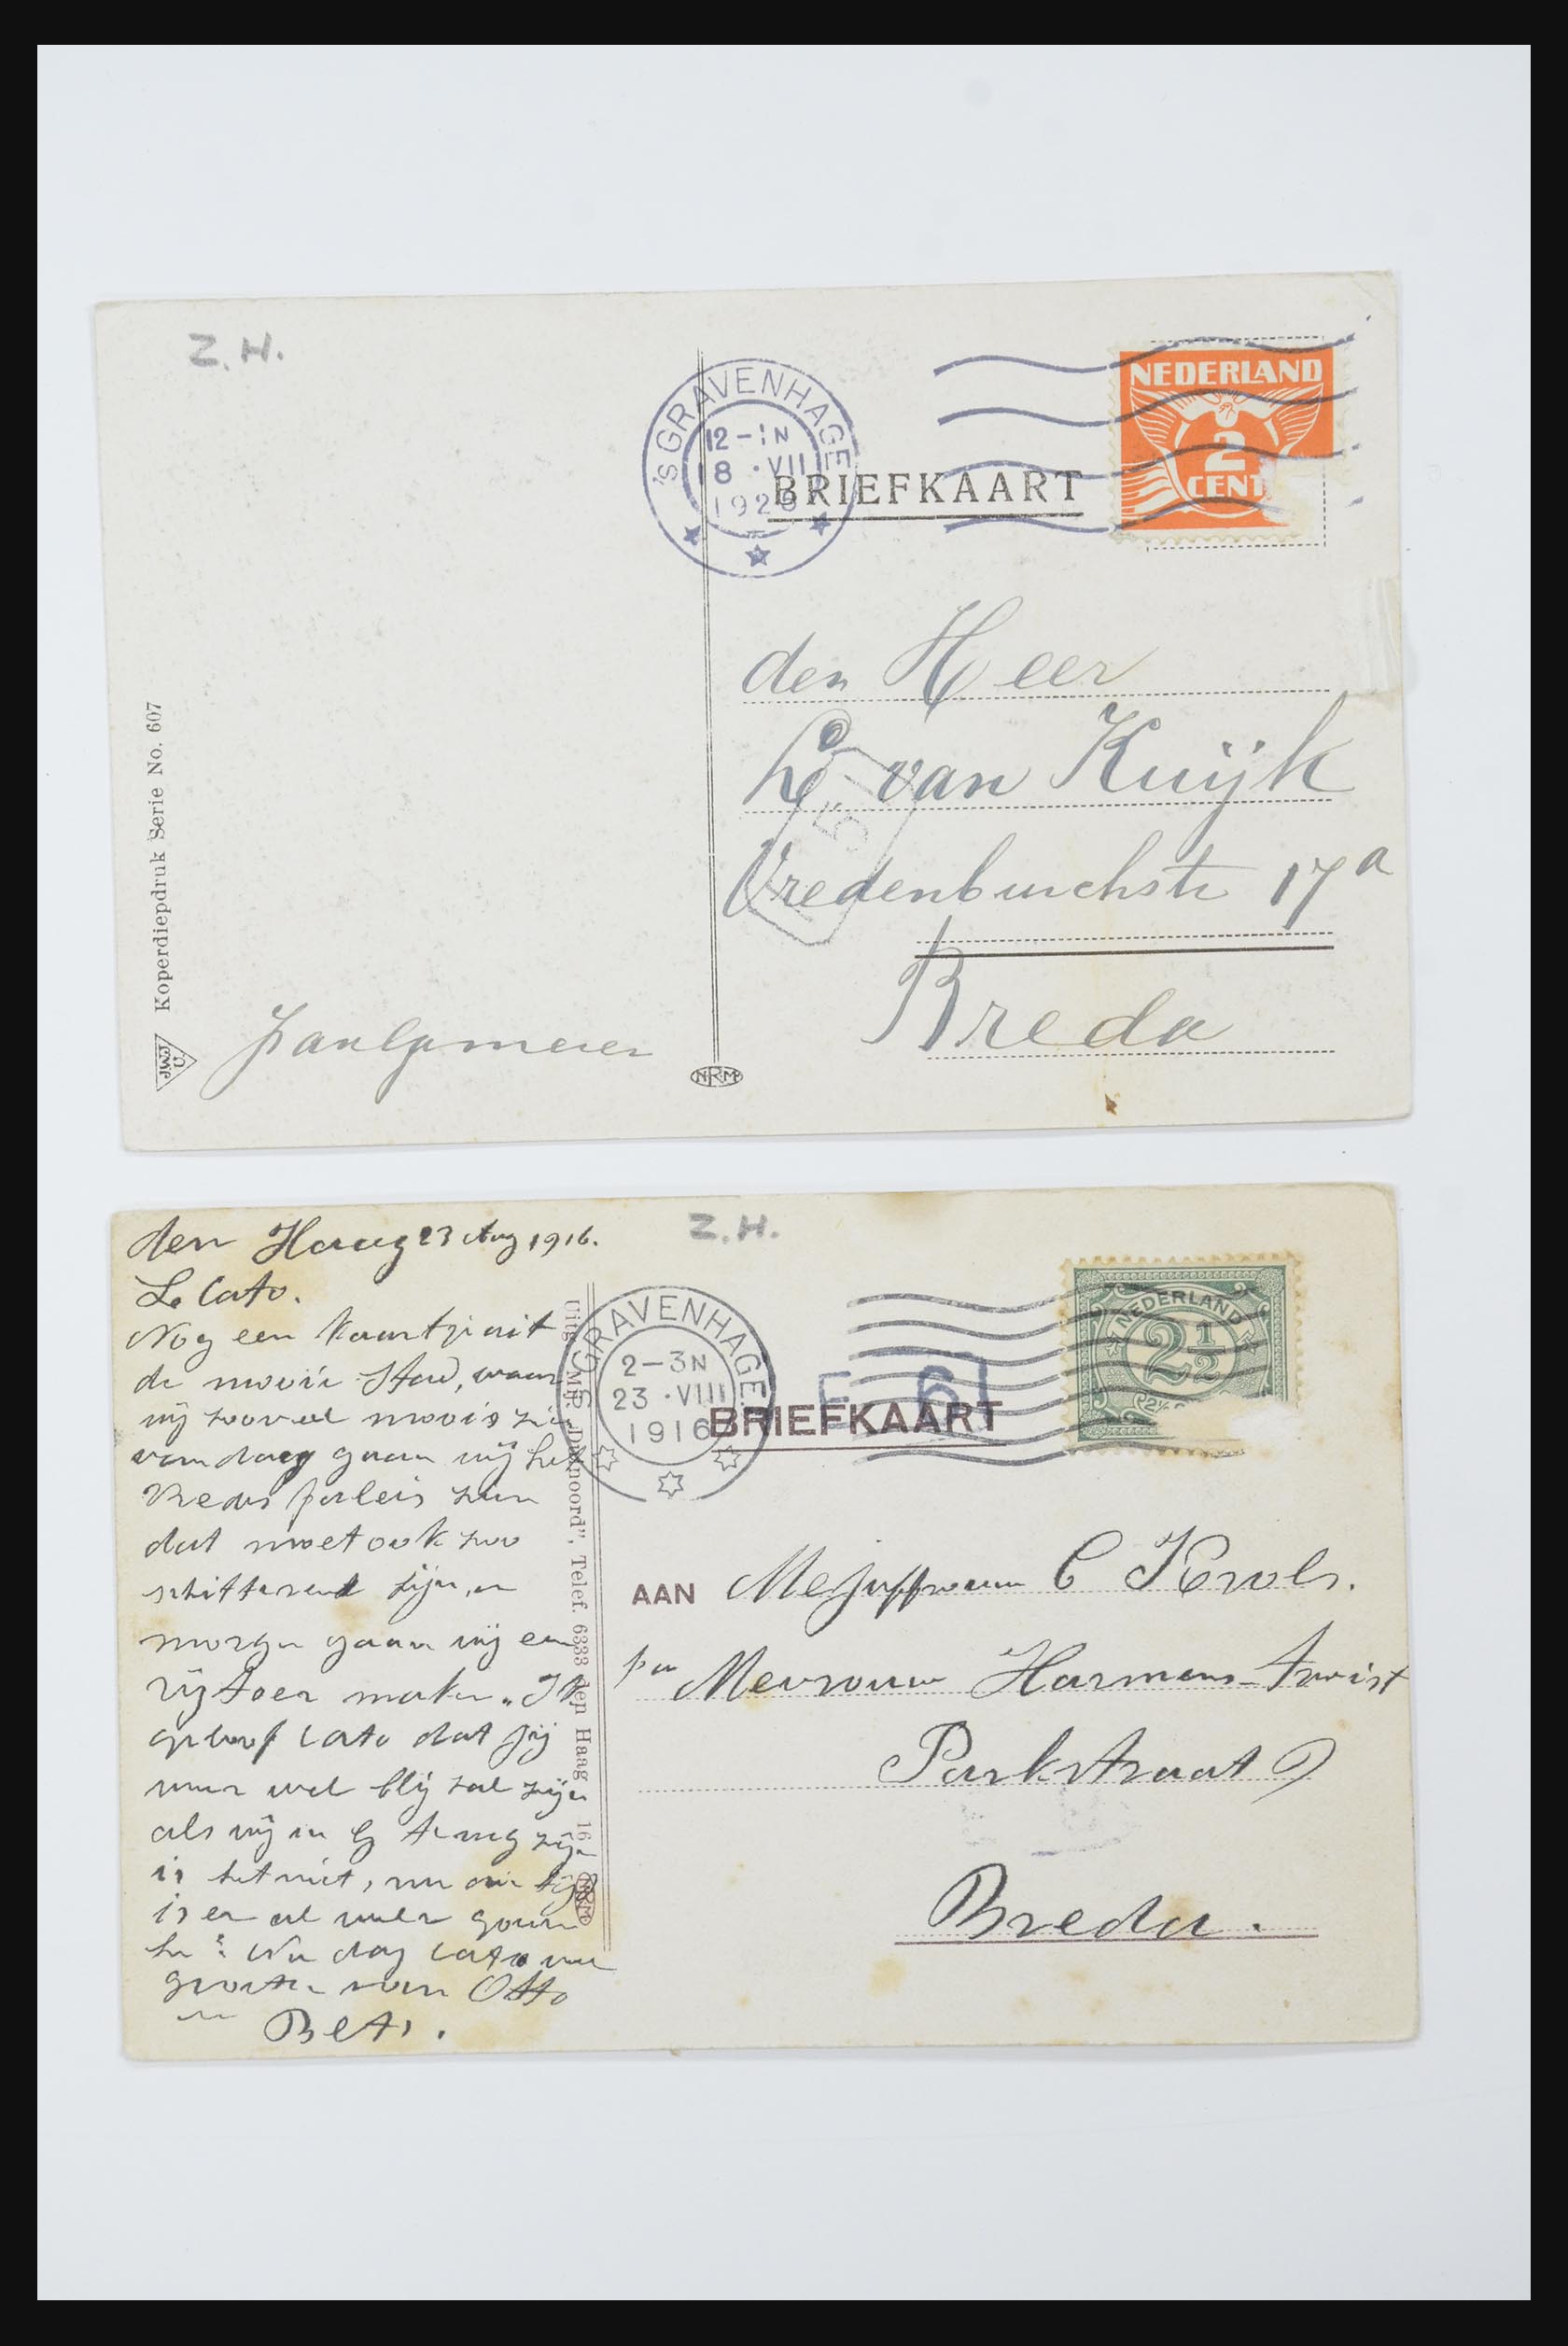 Z.H.
'SGRAVENHAGE
12-1N
18 ·VII
192
NEDERLAND
2
CENT
BRIEFKAART
den Heer
van Kuijk
Vredenburchstr 17a
Breda
Koperdiepdruk Serie No. 607
NRM
den Haag 23 Aug 1916.
L. Cato.
Nog een kaartje uit
de mooie stad, waar
wij zooveel moois zie
vandaag gaan wij het
Vredes paleis zien
dat moet ook zoo
schitterend zijn, en
morgen gaan wij een
rijtoer maken. Ik
geloof Cato dat jij
maar wel blij zal zijn
als wij in B terug zijn
is het niet, nu die tijd
is er al weer gauw
he? Nu dag Cato
groeten van Otto
en Bets.
Z.H.
'SGRAVENHAGE
2-3N
23 ·VIII
1916
NEDERLAND
2½
61
BRIEFKAART
Uitg. "Duinoord", Telef. 6333 den Haag 16
NRM
AAN Mejuffrouw C Krols.
per Mevrouw Harmans-Twist
Parkstraat 9
Breda.